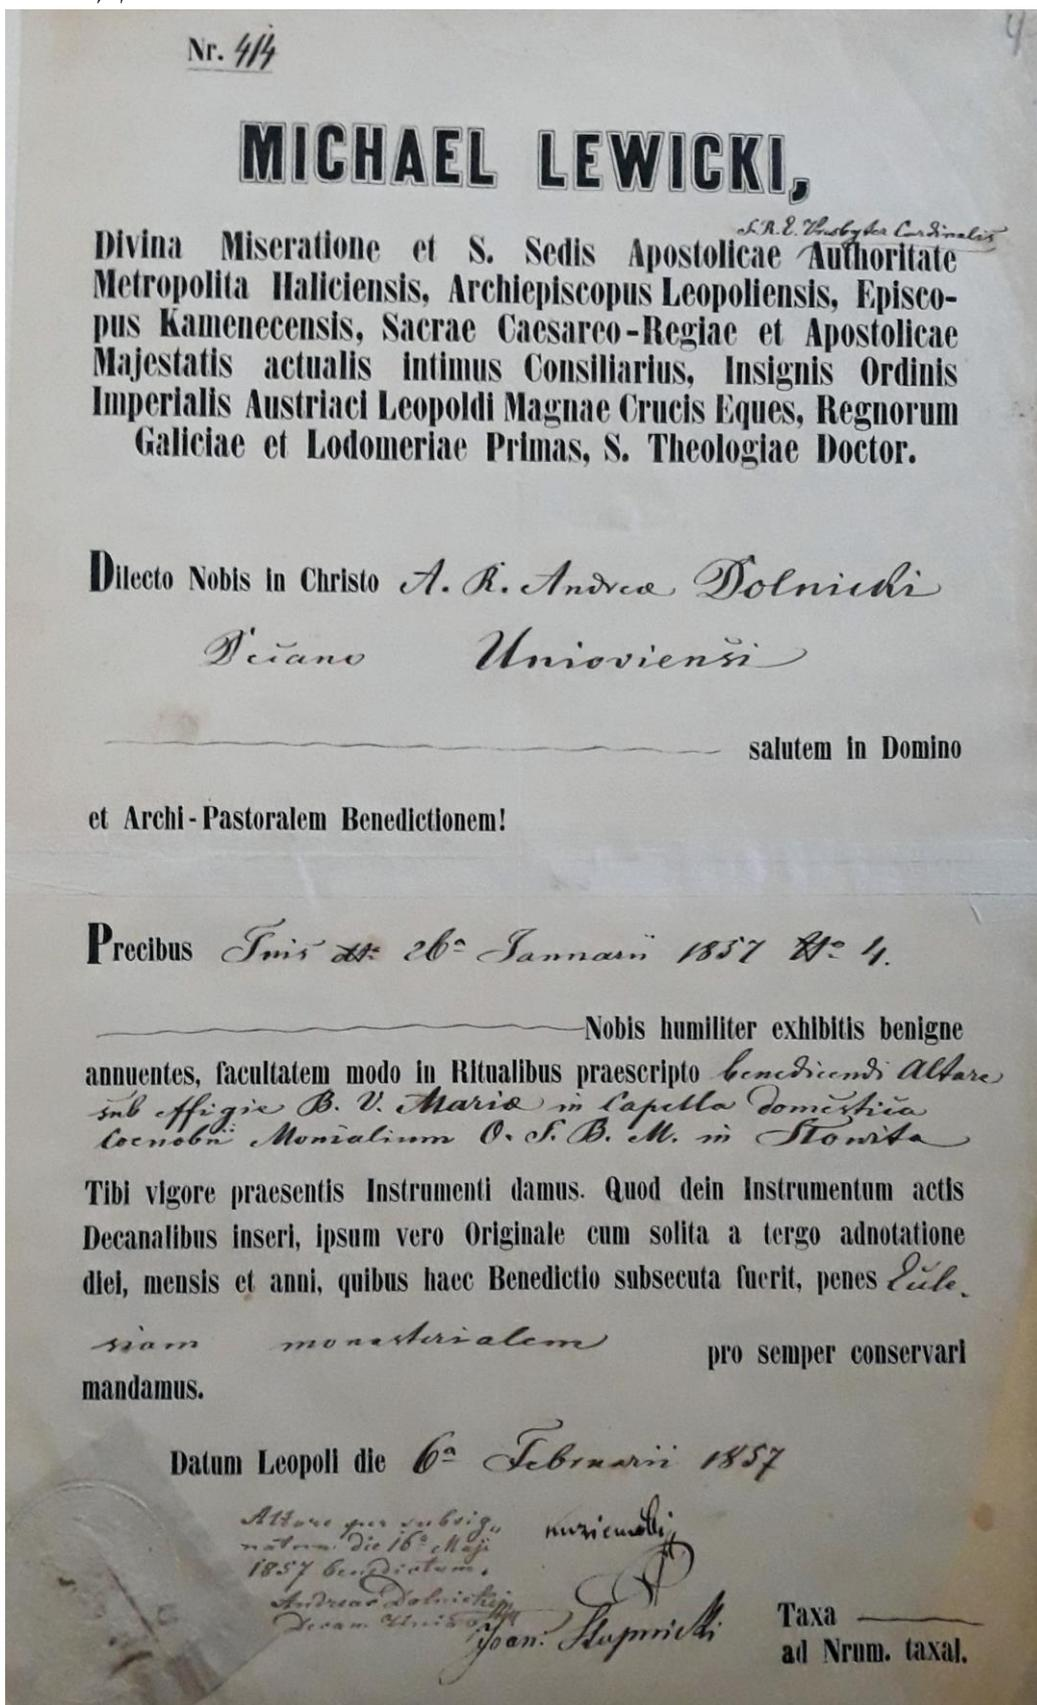 4
Nr. 414
MICHAEL LEWICKI,
S. R. E. Presbyter Cardinalis
Divina Miseratione et S. Sedis Apostolicae Authoritate
Metropolita Haliciensis, Archiepiscopus Leopoliensis, Episco-
pus Kamenecensis, Sacrae Caesareo-Regiae et Apostolicae
Majestatis actualis intimus Consiliarius, Insignis Ordinis
Imperialis Austriaci Leopoldi Magnae Crucis Eques, Regnorum
Galiciae et Lodomeriae Primas, S. Theologiae Doctor.
Dilecto Nobis in Christo A. R. Andreæ Dolnicki
Decano Unioviensi
salutem in Domino
et Archi-Pastoralem Benedictionem!
Precibus Tuis dto 26a Januarii 1857 Nro 4.
Nobis humiliter exhibitis benigne
annuentes, facultatem modo in Ritualibus praescripto benedicendi Altare
sub effigie B. V. Mariæ in Capella domestica
Coenobii Monialium O. S. B. M. in Słowita
Tibi vigore praesentis Instrumenti damus. Quod dein Instrumentum actis
Decanalibus inseri, ipsum vero Originale cum solita a tergo adnotatione
diei, mensis et anni, quibus haec Benedictio subsecuta fuerit, penes Eccle-
siam monasterialem pro semper conservari
mandamus.
Datum Leopoli die 6a Februarii 1857
Altare per subsig-
natum die 16a Maji
1857 benedictum.
Andreas Dolnicki
Decan.
Joan. Stupnicki
Taxa
ad Nrum. taxal.